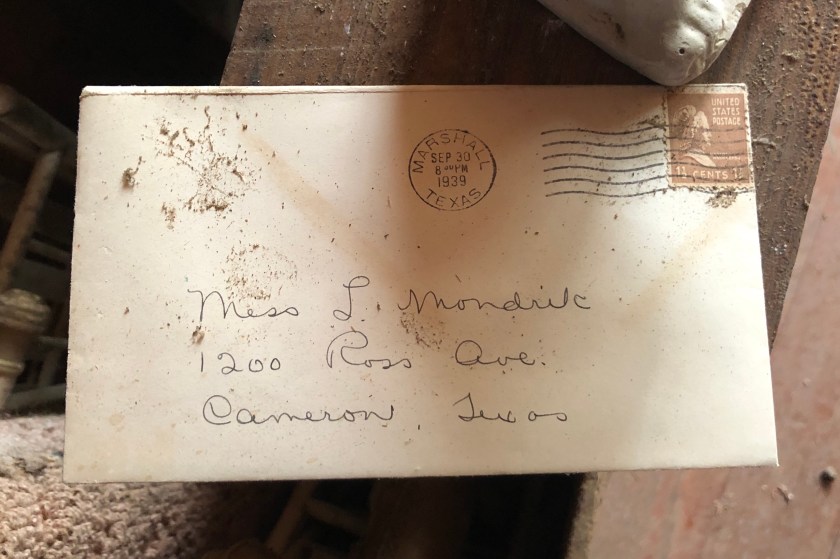 MARSHALL
SEP 30
8 PM
1939
TEXAS
UNITED
STATES
POSTAGE
CENTS
Mess L. Mondrik
1200 Ross Ave.
Cameron, Texas